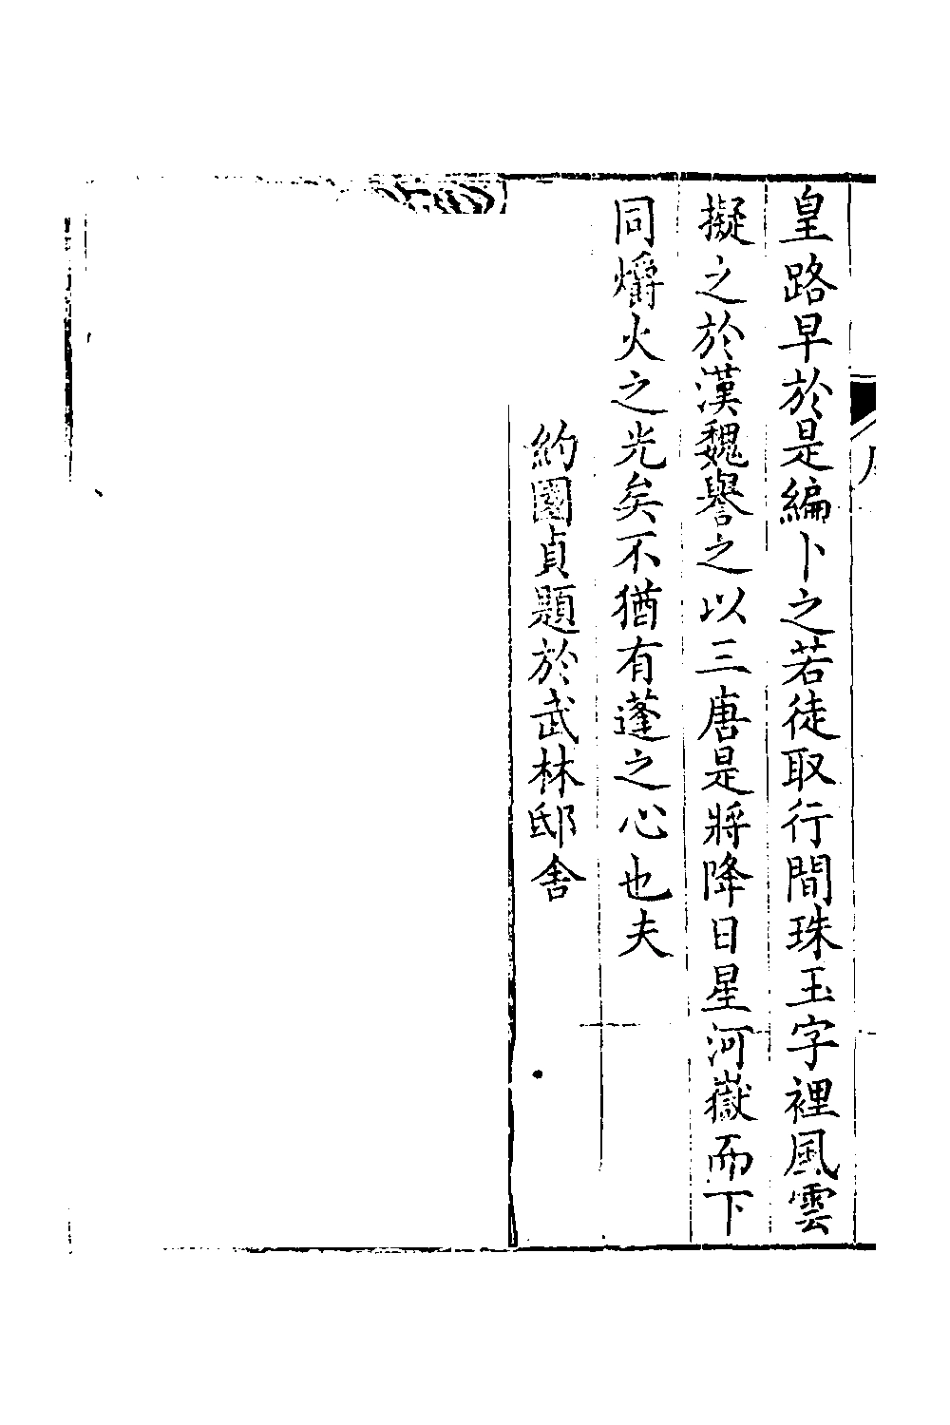 皇路早於是編卜之若徒取行間珠玉字裡風雲
擬之於漢魏譽之以三唐是將降日星河嶽而下
同爝火之光矣不猶有蓬之心也夫
約園貞題於武林邸舍